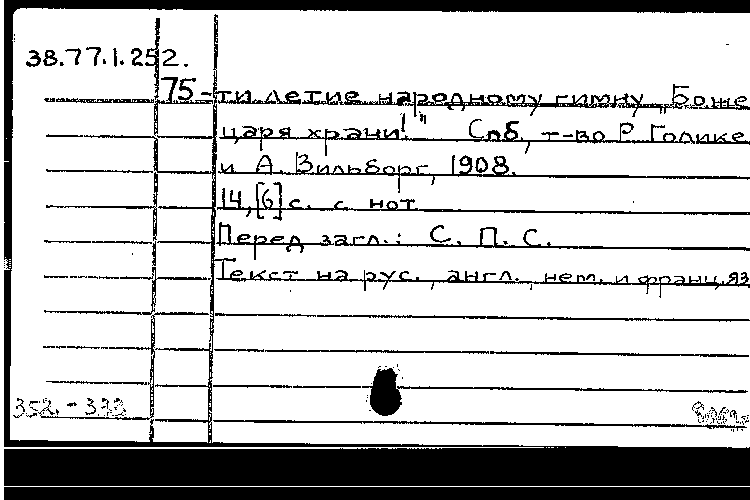 38.77.1.252.
75-ти летие народному гимну „Боже
царя храни!" Спб., т-во Р. Голике
и А. Вильборг, 1908.
14,[6] с. с нот
Перед загл.: С. П. С.
Текст на рус., англ., нем. и франц. яз